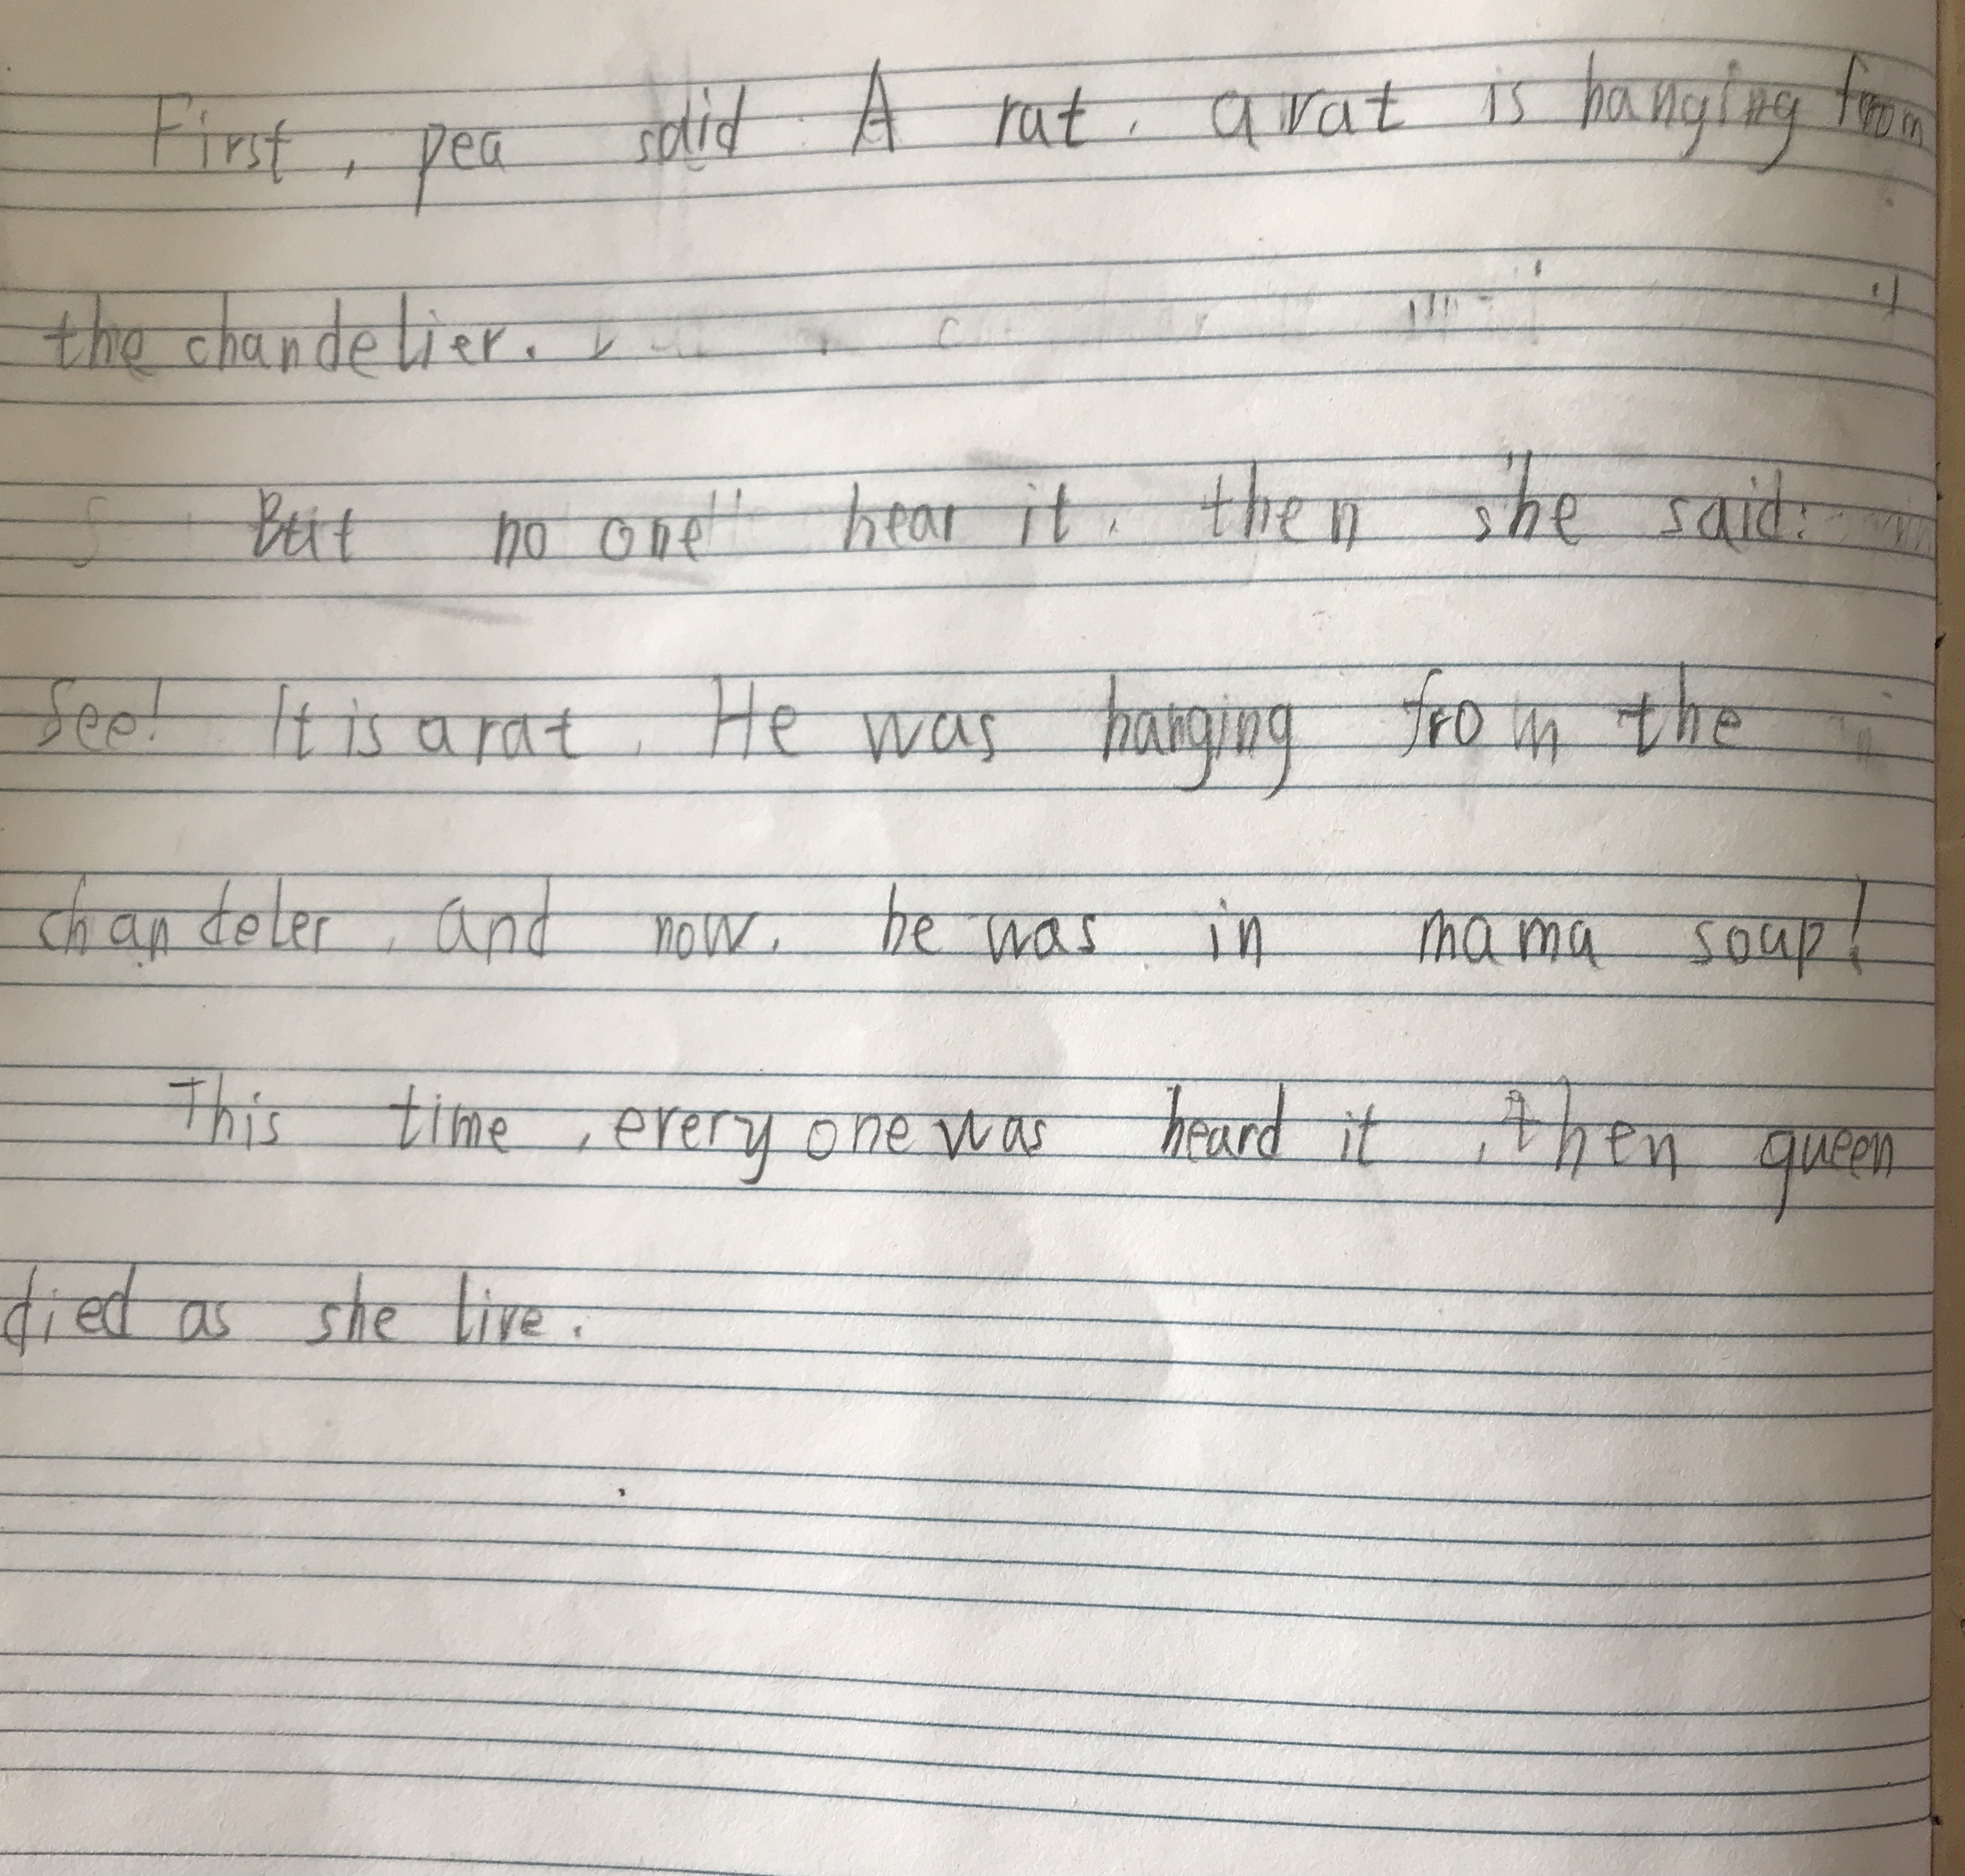 First, pea said: A rat. a rat is hanging from
the chandelier.
But no one hear it. then she said:
See! It is a rat. He was hanging from the
chandeler, and now, he was in mama soup!
This time, every one was heard it, then queen
died as she live.